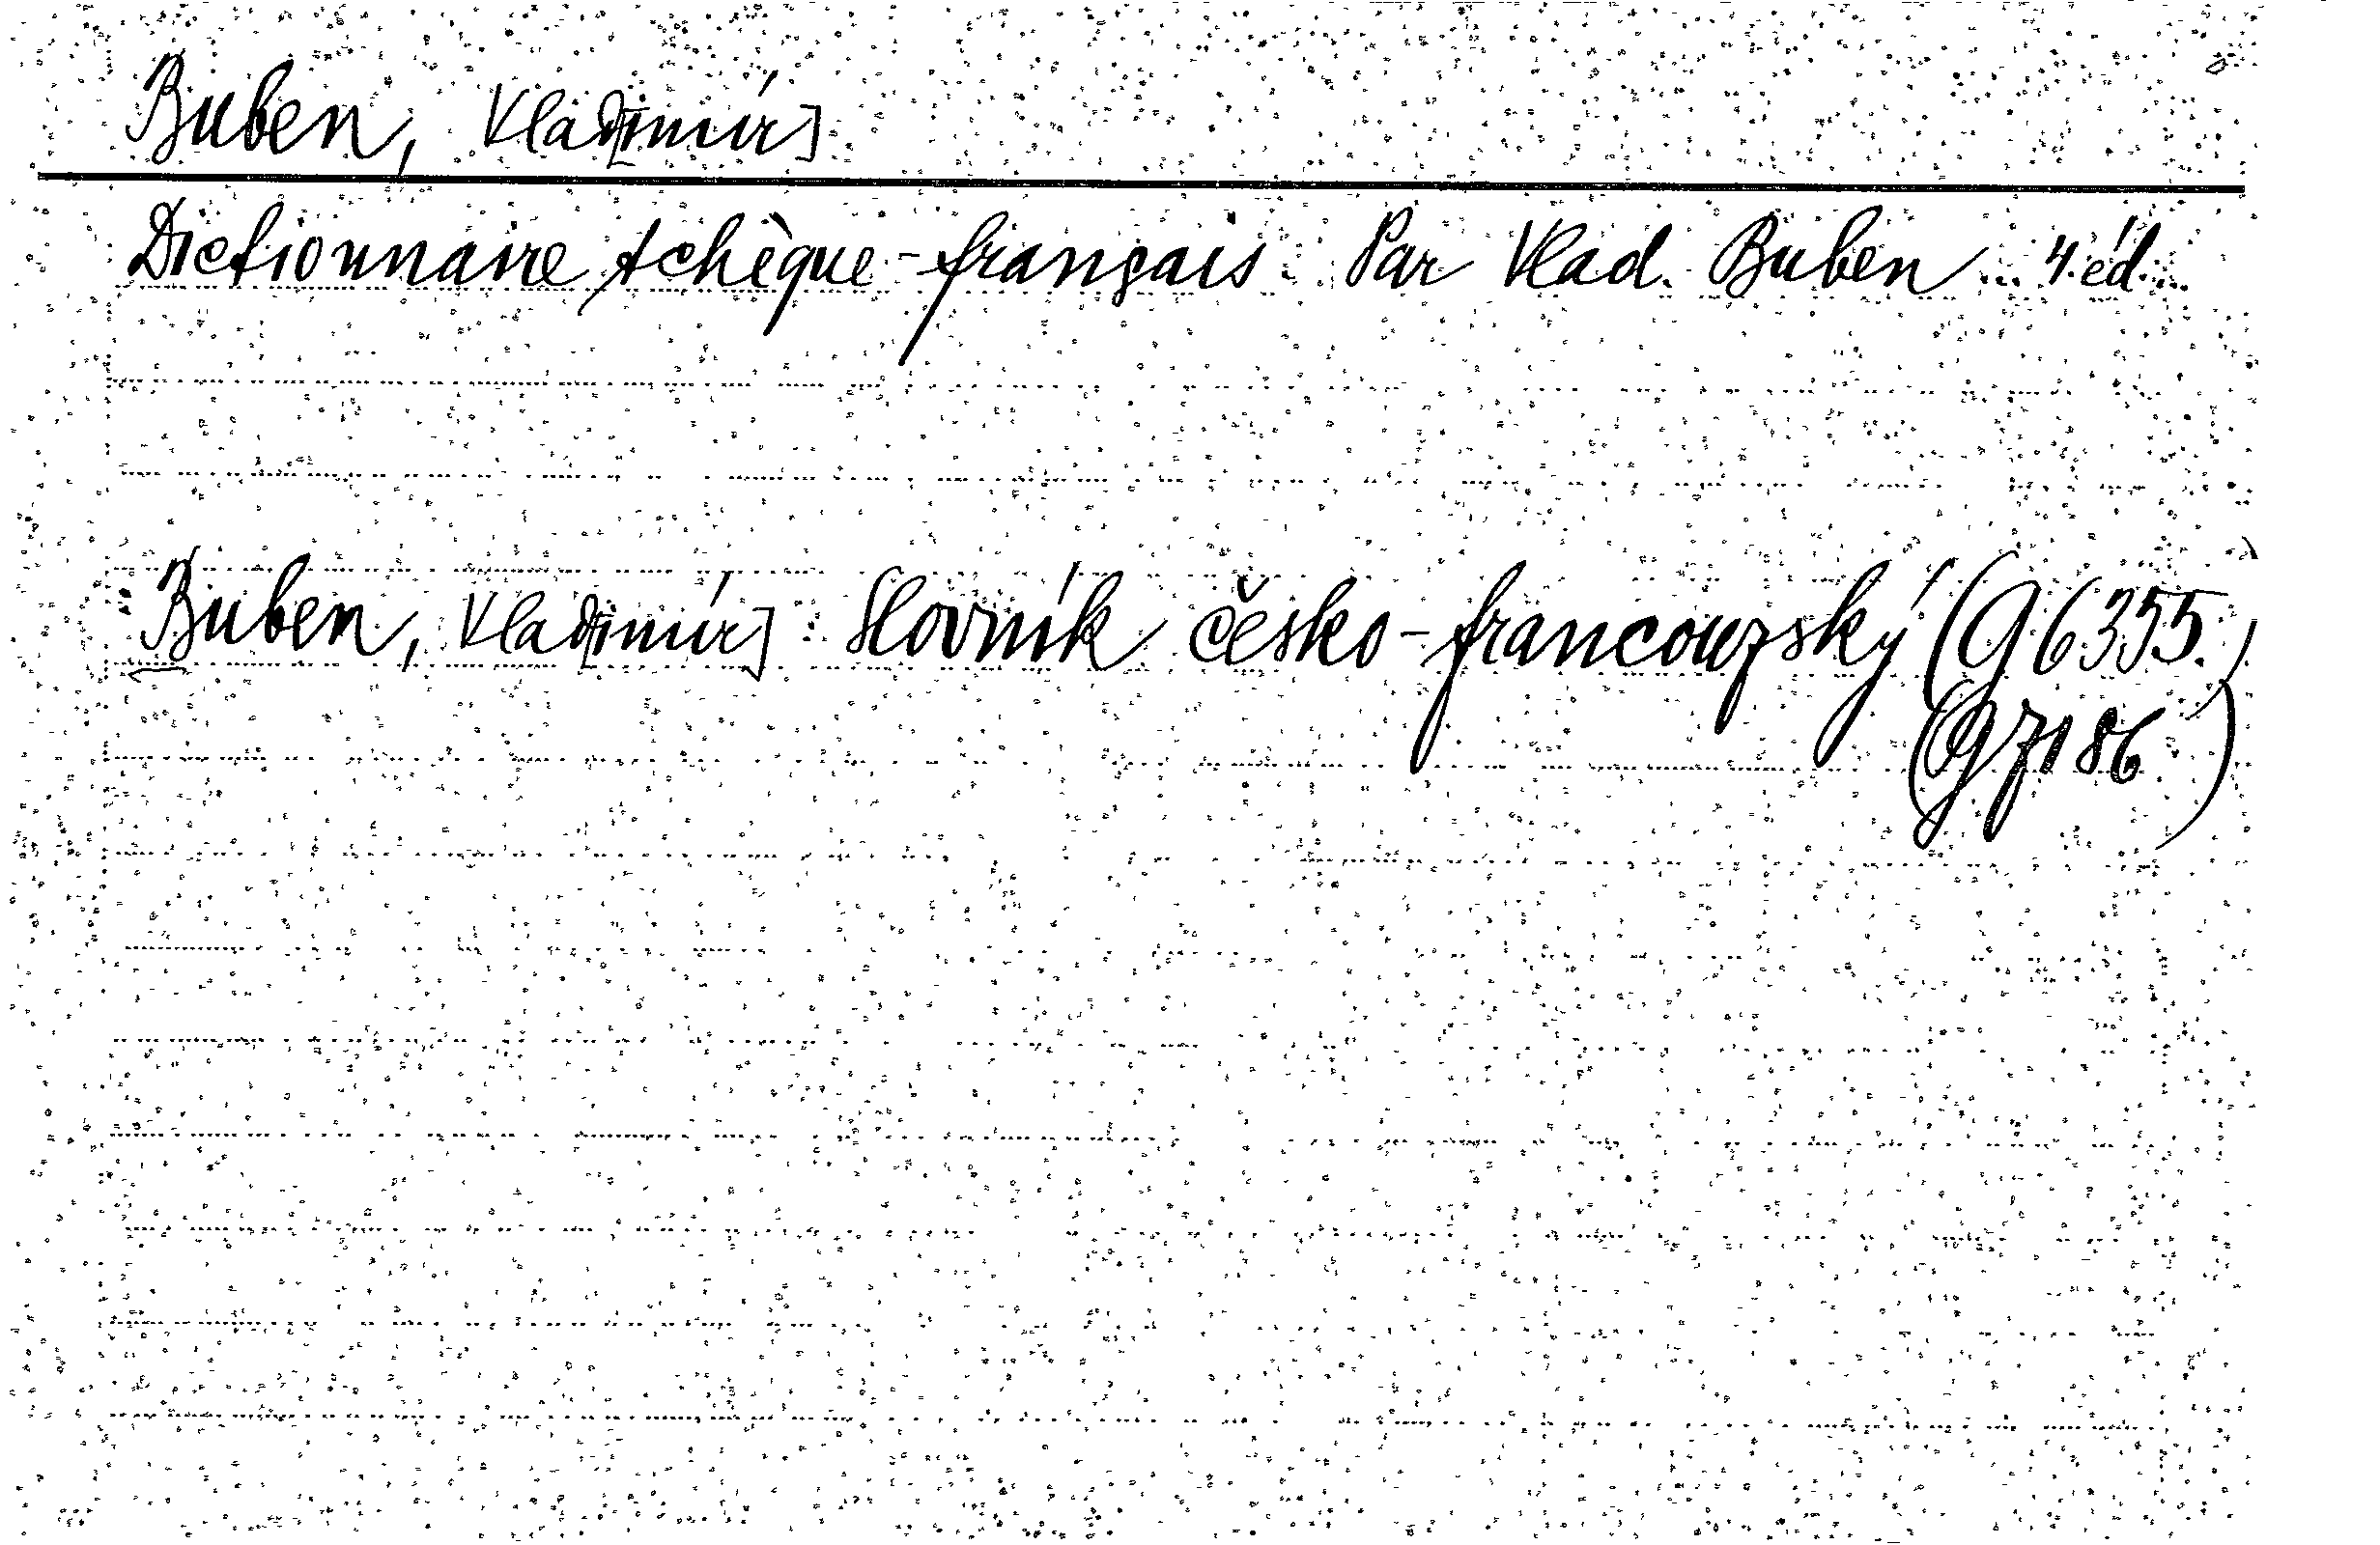 Buben, Vlad[imír]
Dictionnaire tchèque-français. Par Vlad. Buben ... 4. éd. ...
Buben, Vlad[imír] Slovník česko-francouzský (G 6355.,
G 7186.)